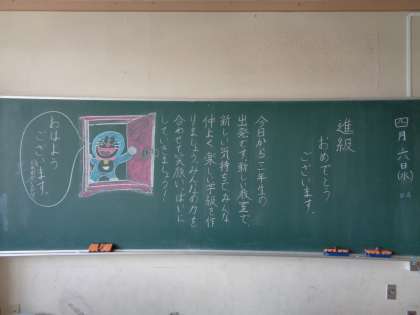 四月六日(水)
進級
おめでとう
ございます。
今日から二年生の
出発です。新しい教室で、
新しい気持ちでみんな
仲よく楽しい学級を作
りましょう。みんなの力を
合わせて、笑顔いっぱいに
していきましょう!
おはよう
ございます。